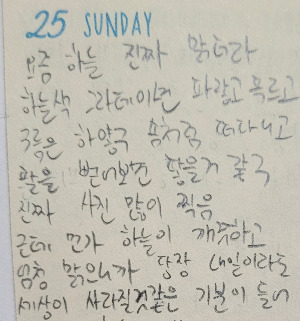 25 SUNDAY
요즘 하늘 진짜 맑더라
하늘색 그라데이션 파랗고 푸르고
구름은 하얗구 솜처럼 떠다니고
팔을 뻗어보면 닿을거 같구
진짜 사진 많이 찍음
근데 먼가 하늘이 깨끗하고
엄청 맑으니까 당장 내일이라도
세상이 사라질것같은 기분이 들어